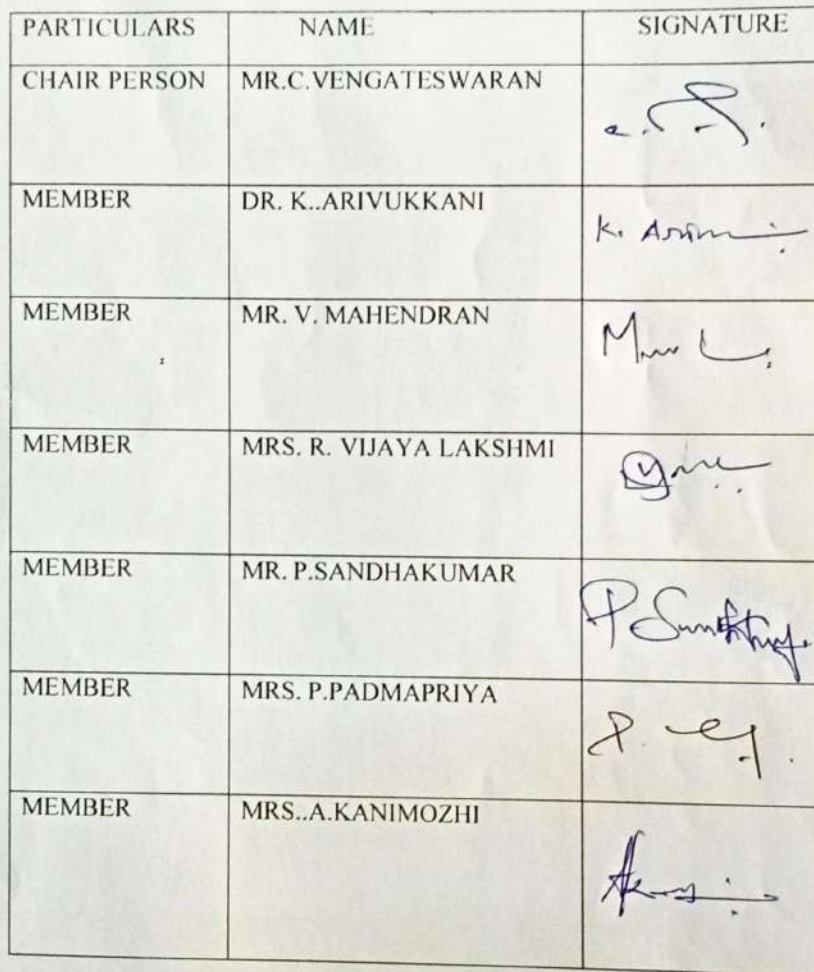 PARTICULARS NAME SIGNATURE
CHAIR PERSON MR.C.VENGATESWARAN
MEMBER DR. K..ARIVUKKANI
K.
MEMBER MR. V. MAHENDRAN
MEMBER MRS. R. VIJAYA LAKSHMI
MEMBER MR. P.SANDHAKUMAR
P
MEMBER MRS. P.PADMAPRIYA
P.
MEMBER MRS..A.KANIMOZHI